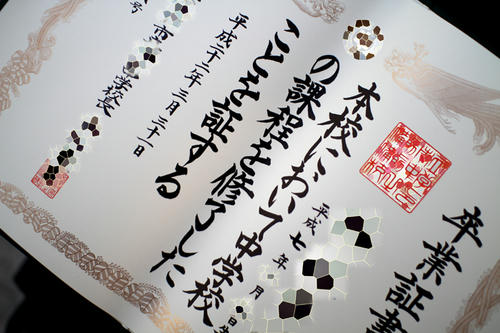 卒業証書
平成七年 月 日
本校において中学校
の課程を修了した
ことを証する
平成二十二年三月三十一日
市 学校長
号